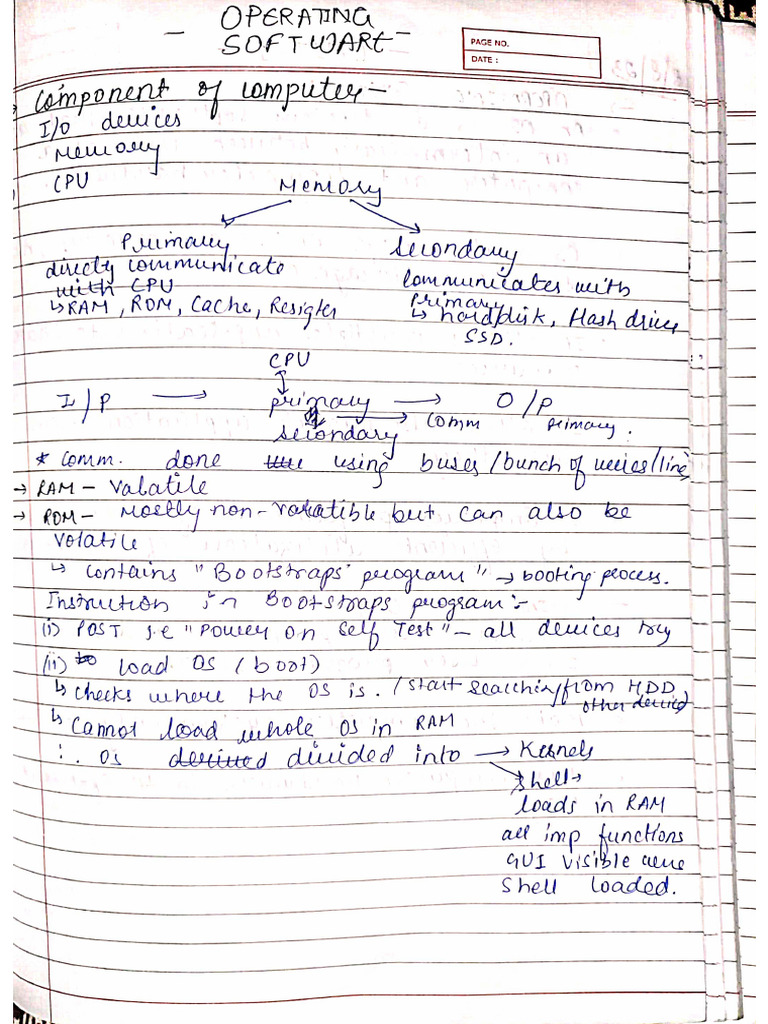 - OPERATING
SOFTWARE -
PAGE NO.
DATE :
→ Component of computer -
I/O devices
Memory
CPU
Memory
Primary
directly communicate
with CPU
↳ RAM, ROM, Cache, Resigter
Secondary
Communicates with
primary
↳ hard disk, flash drive
SSD.
CPU
I/P → primary → O/P
→ Comm primary.
secondary
* Comm. done using buses/bunch of wires/lines
→ RAM - Valatile
→ ROM - Mostly non-volatible but can also be
volatile
↳ contains "Bootstraps program" → booting process.
Instruction in Bootstraps program :-
(i) POST i.e "Power on Self Test" - all devices try
(ii) load OS (boot)
↳ checks where the OS is. (start searching from HDD
other device)
↳ Cannot load whole OS in RAM
∴ OS divided into → Kernels
→ Shell →
loads in RAM
all imp functions
GUI visible
Shell loaded.